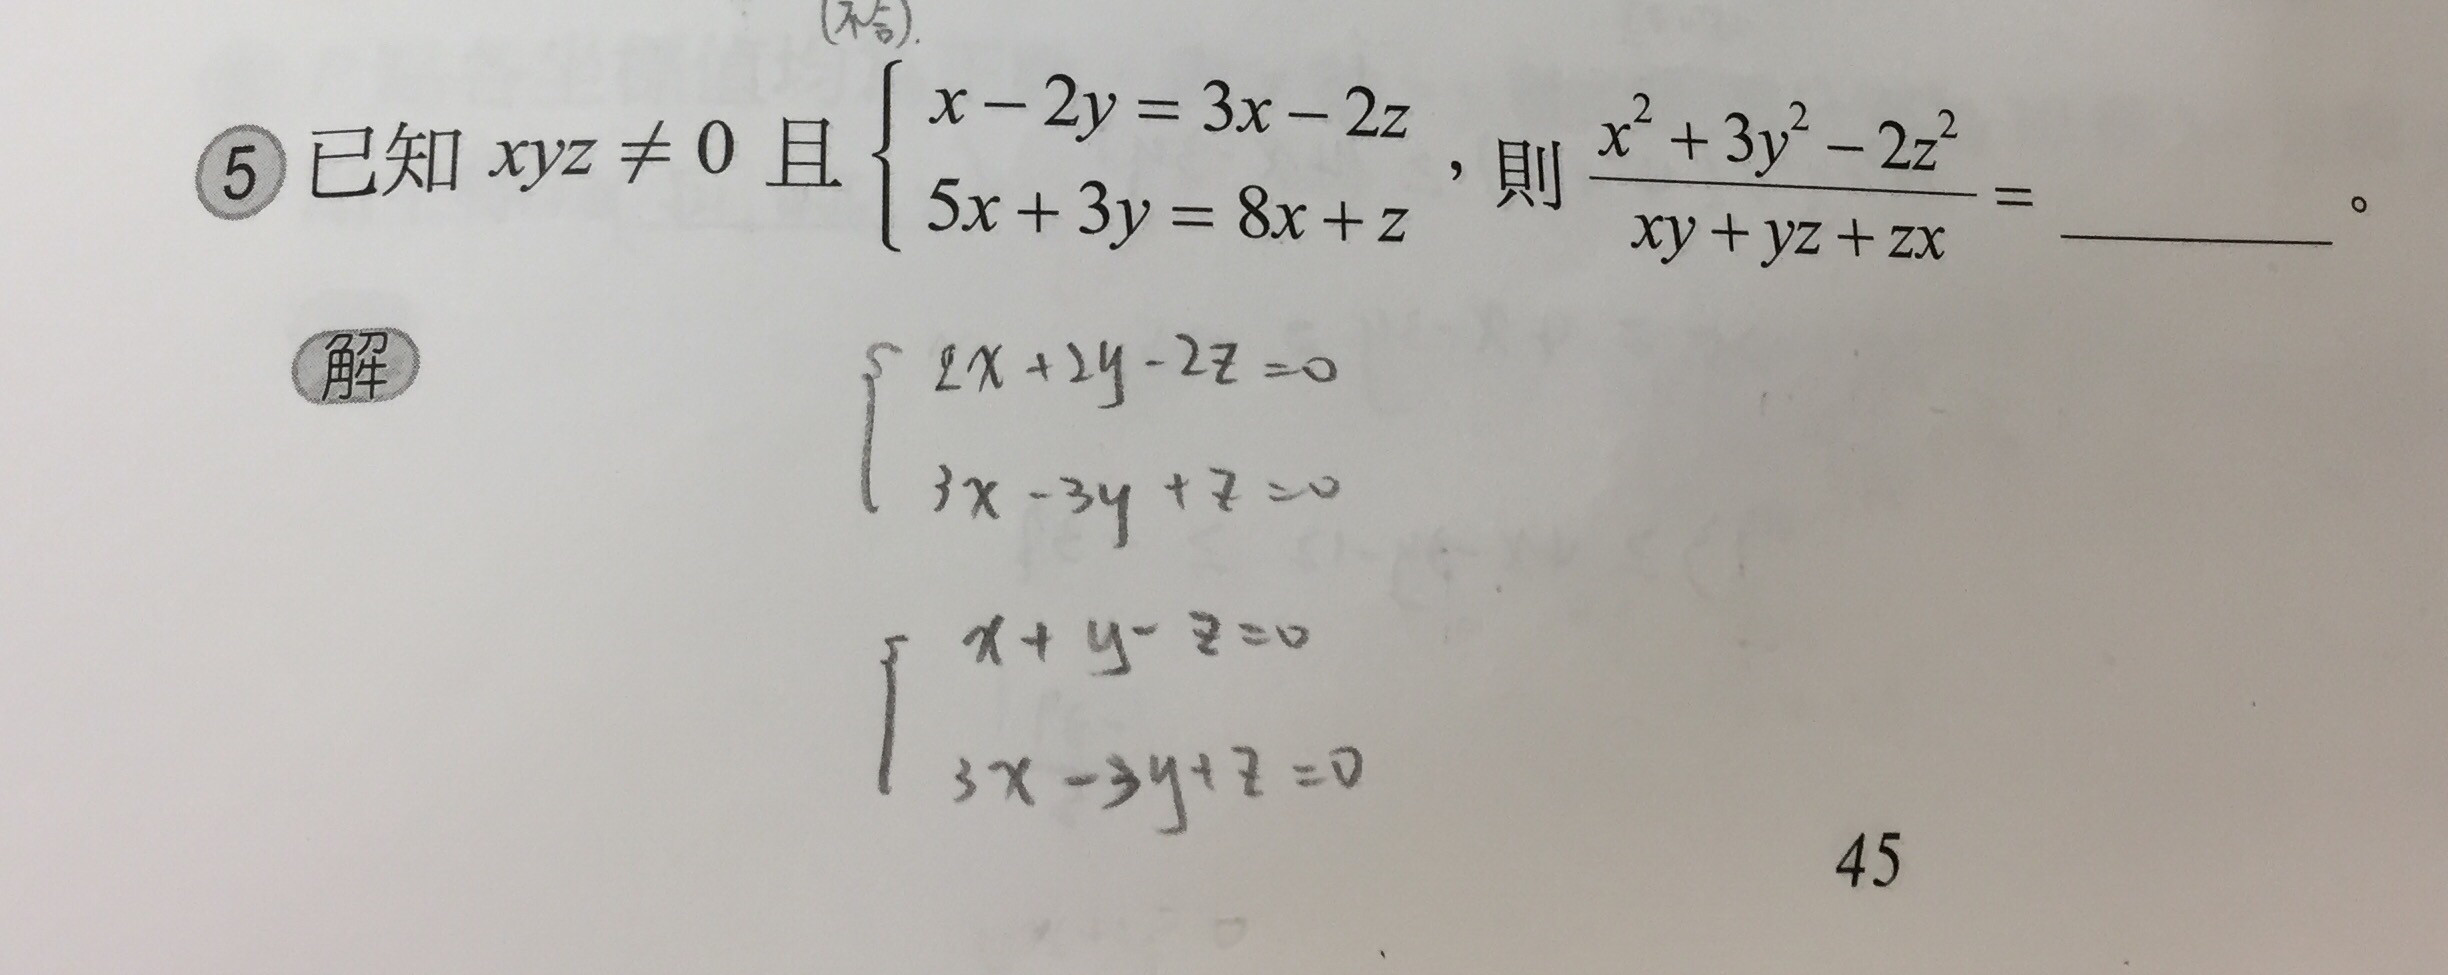 (不合).
5 已知 xyz ≠ 0 且 { x − 2y = 3x − 2z , 5x + 3y = 8x + z ,則 (x² + 3y² − 2z²)/(xy + yz + zx) = ______ 。
解
{ 2x + 2y - 2z = 0
3x - 3y + z = 0
{ x + y - z = 0
3x - 3y + z = 0
45